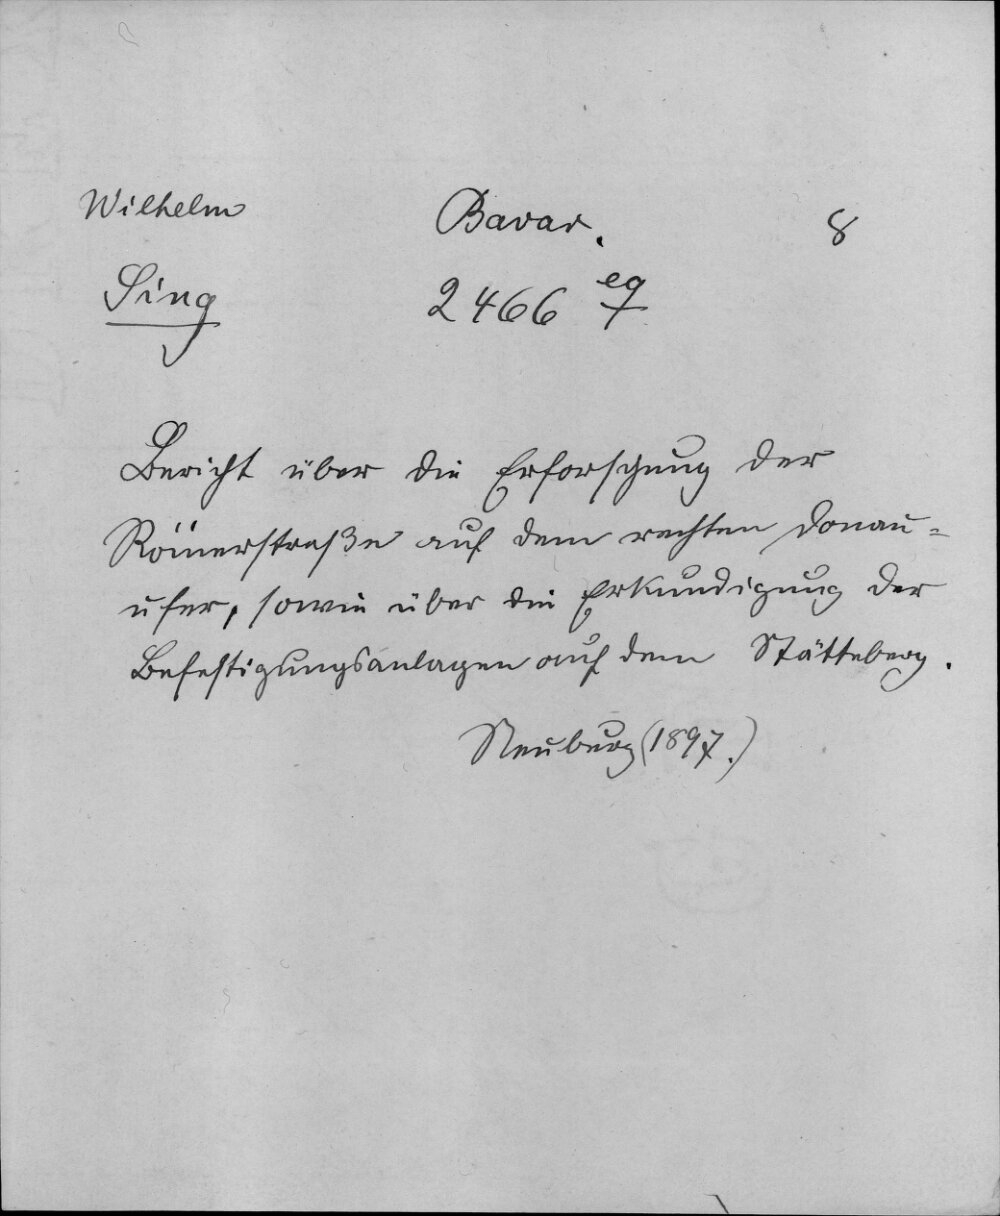 Wilhelm Bavar. 8
Sing 2466 eq
7
Bericht über die Erforschung der
Römerstraße auf dem rechten Donau=
ufer, sowie über die Erkundigung der
Befestigungsanlagen auf dem Stätteberg.
Neuburg (1897.)